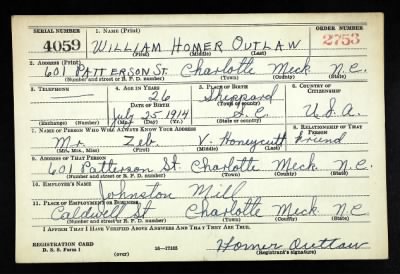 SERIAL NUMBER 1. NAME (Print) ORDER NUMBER
4059 WILLIAM HOMER OUTLAW 2753
(First) (Middle) (Last)
2. ADDRESS (Print)
601 PATTERSON ST. Charlotte Meck N.C.
(Number and street or R. F. D. number) (Town) (County) (State)
3. TELEPHONE 4. AGE IN YEARS 5. PLACE OF BIRTH 6. COUNTRY OF CITIZENSHIP
26 Sheppard
DATE OF BIRTH (Town or county)
July 25 1914 S.C. U.S.A.
(Exchange) (Number) (Mo.) (Day) (Yr.) (State or country)
7. NAME OF PERSON WHO WILL ALWAYS KNOW YOUR ADDRESS 8. RELATIONSHIP OF THAT PERSON
Mr. Zeb. V. Honeycutt Friend
(Mr., Mrs., Miss) (First) (Middle) (Last)
9. ADDRESS OF THAT PERSON
601 Patterson St. Charlotte Meck N.C.
(Number and street or R. F. D. number) (Town) (County) (State)
10. EMPLOYER'S NAME
Johnston Mill
11. PLACE OF EMPLOYMENT OR BUSINESS
Caldwell St Charlotte Meck N.C.
(Number and street or R. F. D. number) (Town) (County) (State)
I AFFIRM THAT I HAVE VERIFIED ABOVE ANSWERS AND THAT THEY ARE TRUE.
REGISTRATION CARD
D. S. S. Form 1 (over) Homer Outlaw
(Registrant's signature)